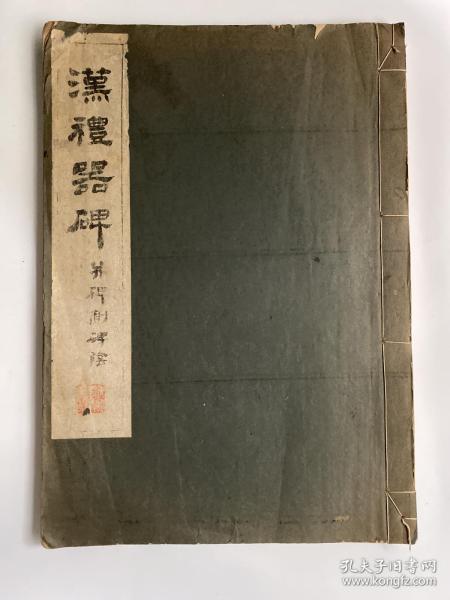 漢禮器碑
并碑側碑陰
孔夫子旧书网
www.kongfz.com